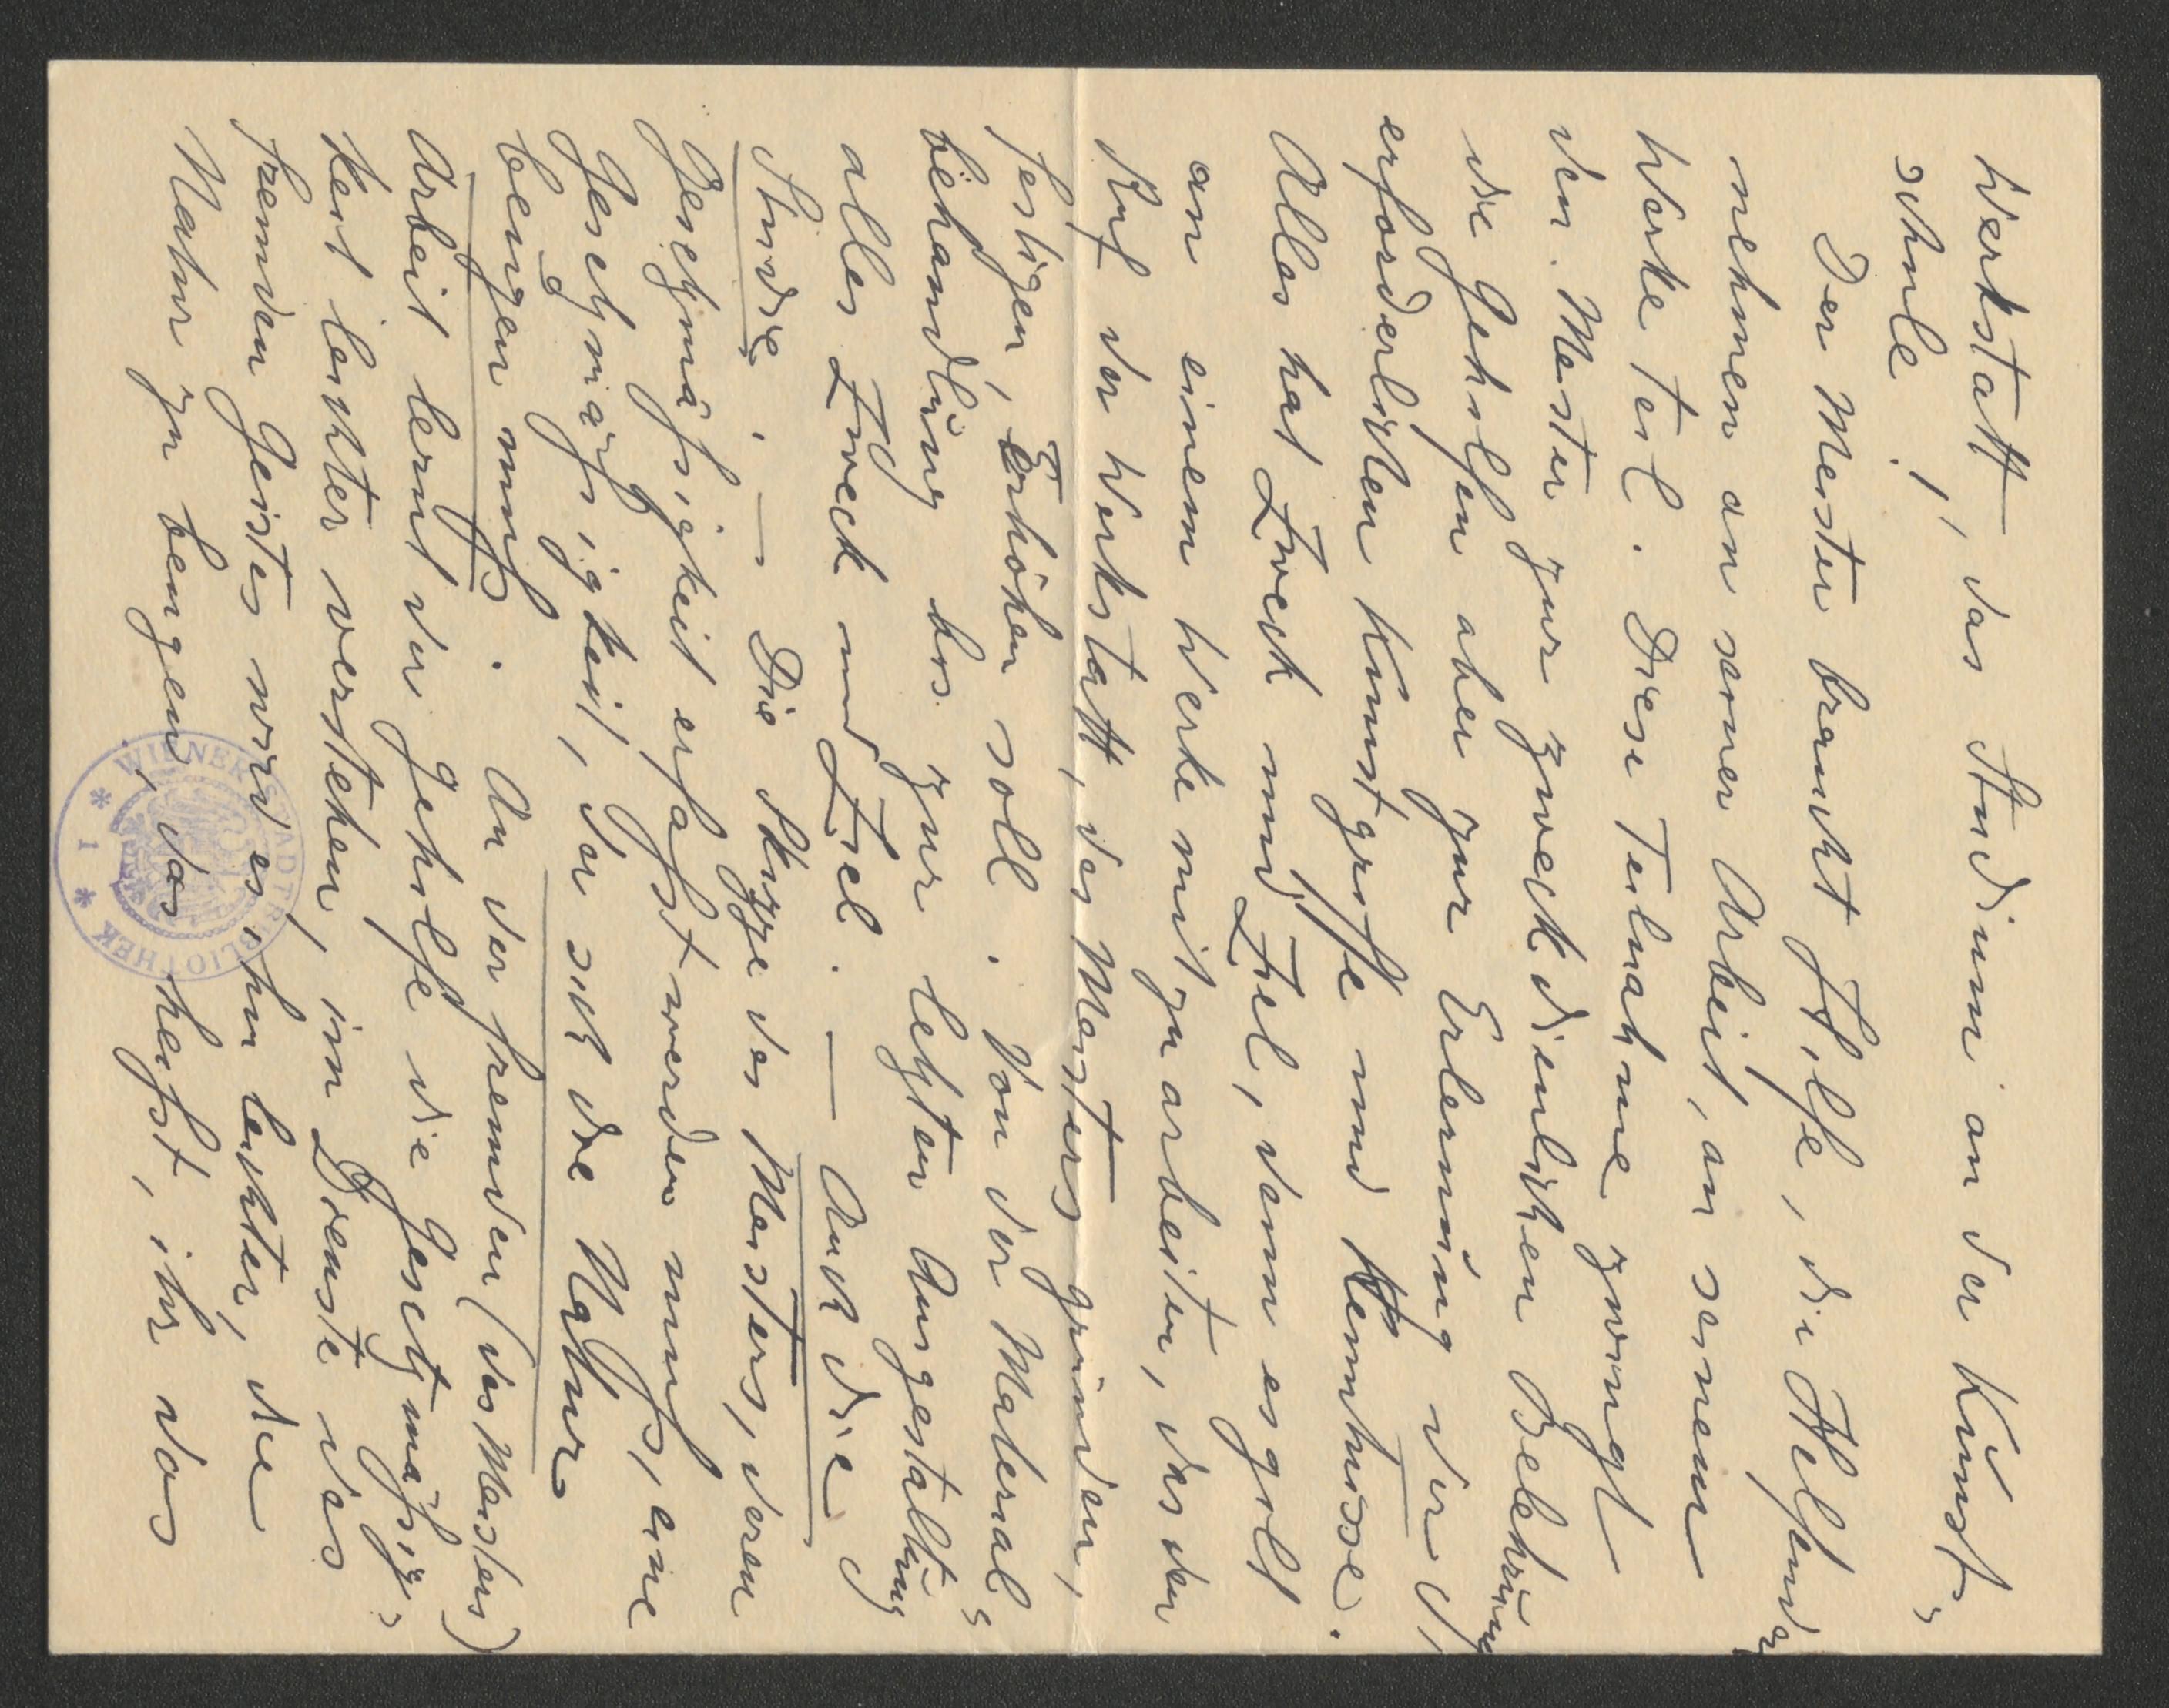 Werkstatt, das Studium an der Kunst-
schule!
Der Meister braucht Hilfe, die Helfende
nehmen an seiner Arbeit, an seinem
Werke teil. Diese Teilnahme zwingt
den Meister zur zweckdienlichen Belehrung
die Gehilfen aber zur Erlernung der d.
erforderlichen Kunstgriffe und Kenntnisse.
Alles hat Zweck und Ziel, denn es gilt
an einem Werke mitzuarbeiten, das den
Ruf der Werkstatt, des Meisters gründen,
festigen, erhöhen soll. Von der Material-
behandlung bis zur letzten Ausgestaltung
alles Zweck und Ziel. — Auch die
Studie. — Die Skizze des Meisters, deren
Gesetzmäßigkeit erfaßt werden muß, eine
Gesetzmäßigkeit, der sich die Natur
beugen muß. An der fremden (des Meisters)
Arbeit lernt der Gehilfe die Gesetzmäßig-
keit leichter verstehen, im Dienste des
fremden Geistes wird es ihm leichter, die
Natur zu beugen, das heißt, ihr das
WIENER STADTBIBLIOTHEK
* 1 *